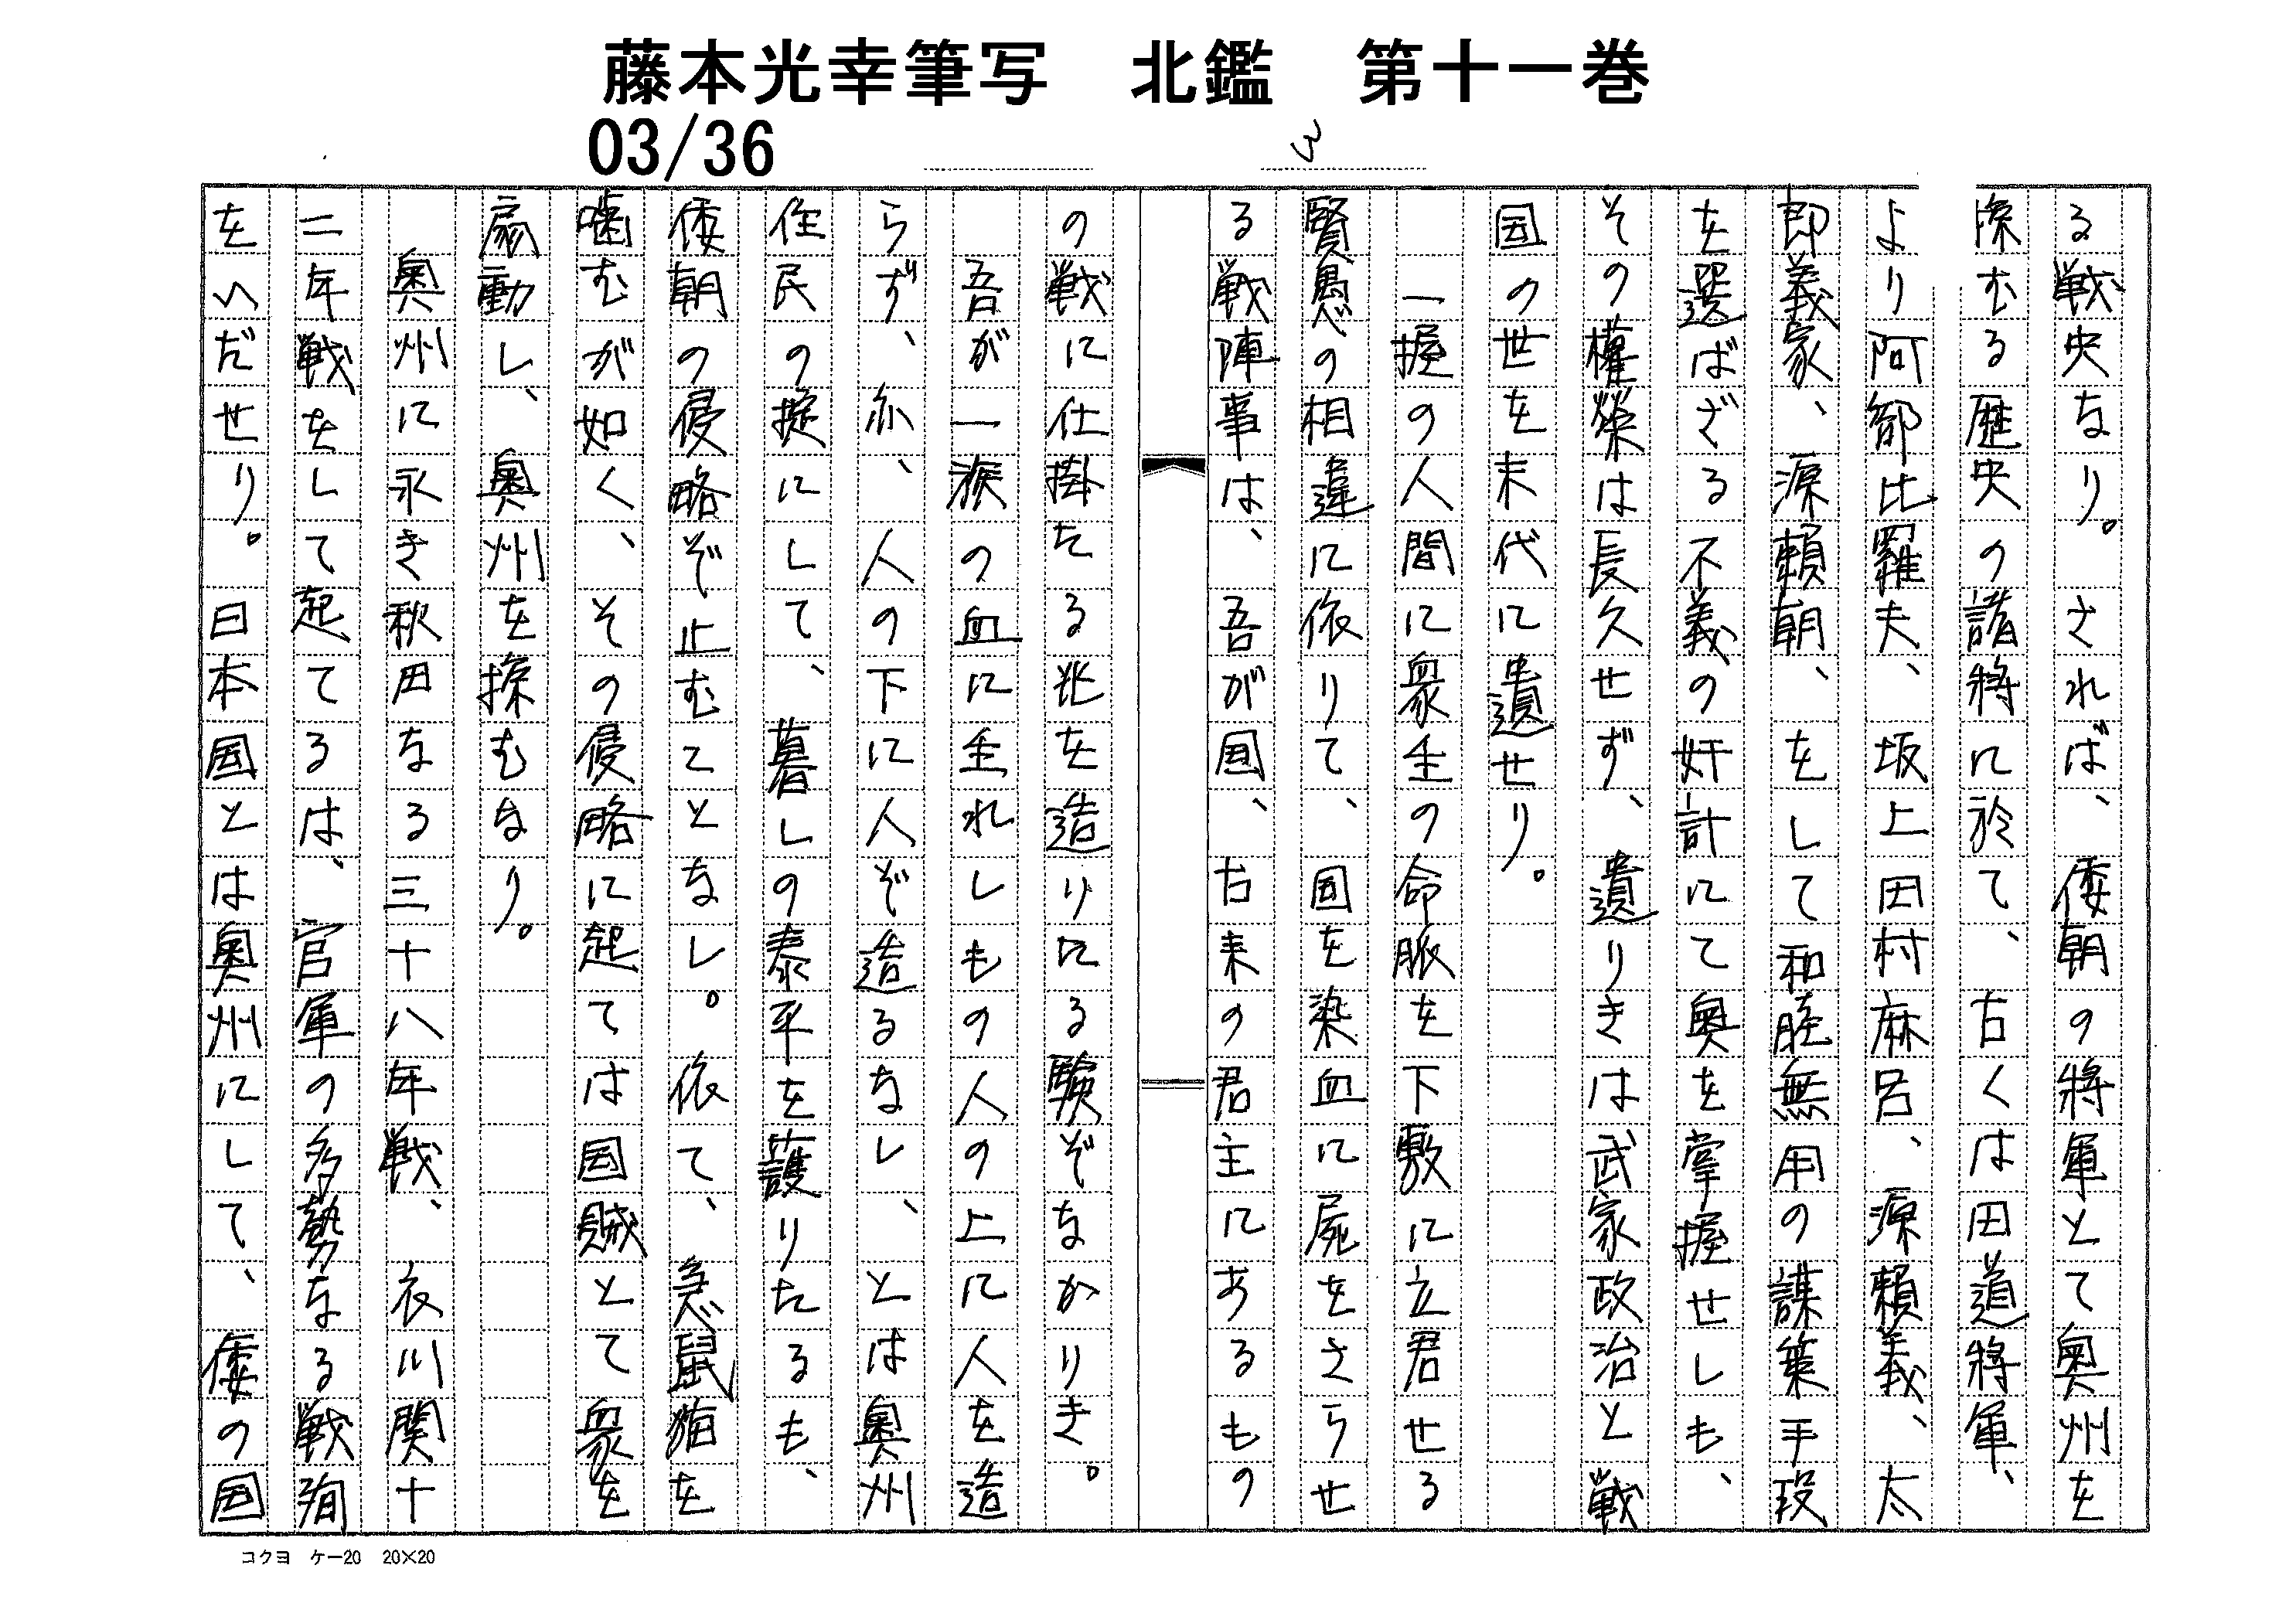 藤本光幸筆写　北鑑　第十一巻
03/36
3
る戦史なり。されば、倭朝の将軍とて奥州を
掠むる歴史の諸将に於て、古くは田道将軍、
より阿部比羅夫、坂上田村麻呂、源頼義、太
郎義家、源頼朝、をして和睦無用の謀策手段
を選ばざる不義の奸計にて奥を掌握せしも、
その権栄は長久せず、遺りきは武家政治と戦
国の世を末代に遺せり。
一握の人間に衆生の命脈を下敷に立君せる
賢愚の相違に依りて、国を染血に屍をさらせ
る戦陣事は、吾が国、古来の君主にあるもの
の戦に仕掛たる兆を造りにる験ぞなかりき。
吾が一族の血に生れしもの人の上に人を造
らず、亦、人の下に人ぞ造るなし、とは奥州
住民の掟にして、暮しの泰平を護りたるも、
倭朝の侵略ぞ止むことなし。依て、急鼠猫を
噛むが如く、その侵略に起ては国賊とて衆を
扇動し、奥州を掠むなり。
奥州に永き秋田なる三十八年戦、衣川関十
二年戦をして起てるは、官軍の多勢なる戦殉
をいだせり。日本国とは奥州にして、倭の国
コクヨ　ケー20　20×20